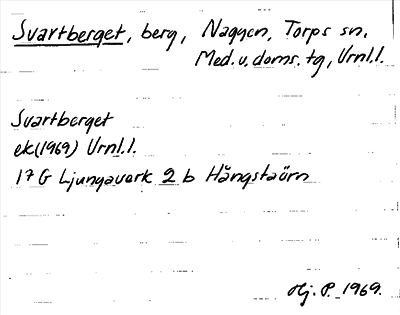 Svartberget, berg, Naggen, Torps sn.
Med. v. doms. tg, Vrnl.l.
Svartberget
ek(1969) Vrnl.l.
17 G Ljungaverk 2 b Hångstaörn
Hj. P. 1969.